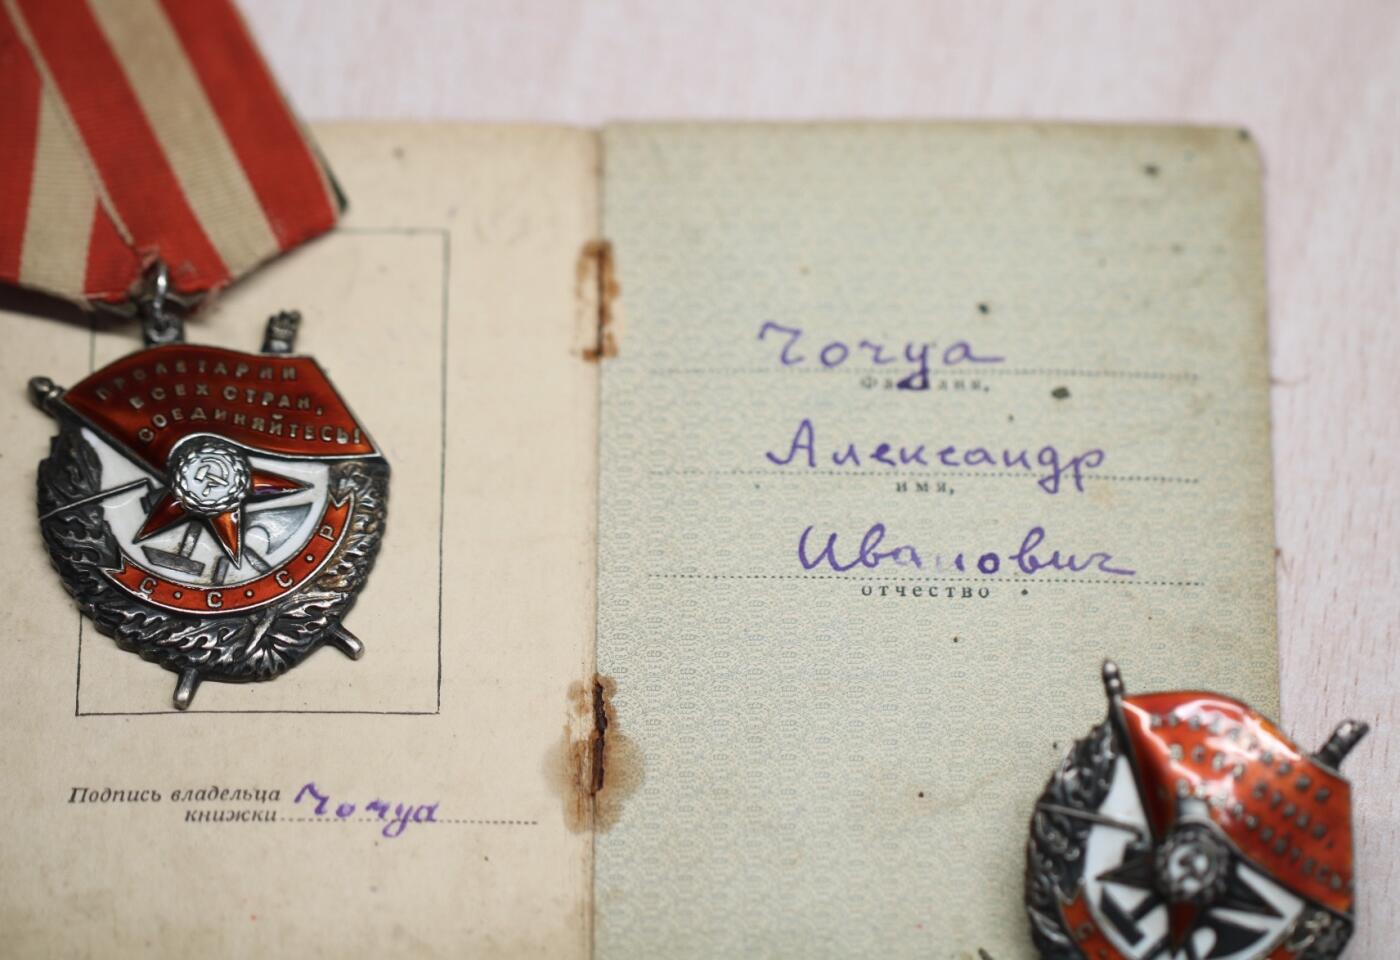 ПРОЛЕТАРИИ
ВСЕХ СТРАН,
СОЕДИНЯЙТЕСЬ!
С · С · С · Р
Подпись владельца
книжки Чочуа
Чочуа
Фамилия,
Александр
имя,
Иванович
отчество